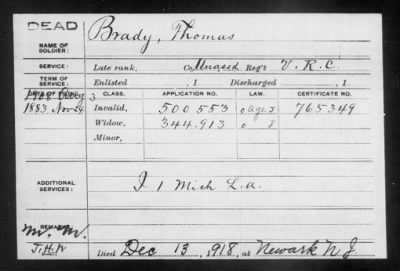 DEAD
Brady, Thomas
NAME OF SOLDIER:
SERVICE: Late rank, Co. Unassd Reg't V. R. C.
TERM OF SERVICE: Enlisted , 1 Discharged , 1
DATE OF FILING CLASS. APPLICATION NO. LAW. CERTIFICATE NO.
1908 3
1883 Nov 24 Invalid, 500 553 J 765349
Widow, 344.913 J
Minor,
ADDITIONAL SERVICES: I 1 Mich L.a.
REMARKS:
M. M.
J.H.
Died Dec 13, 1918, at Newark N J